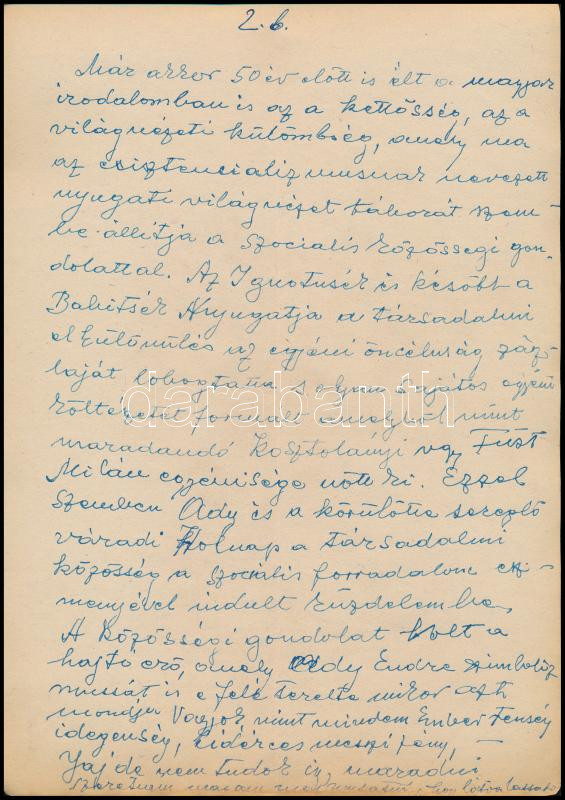 2. b.
Már akkor 50 év előtt is élt a magyar
irodalomban is az a kettősség, az a
világnézeti külömbség, amely ma
az egzisztencializmusnak nevezett
nyugati világnézet táborát szem-
be állítja a szociális közösségi gon-
dolattal. Az Ignotusék és később a
Babitsék Nyugatja a társadalmi
elkülönülés az egyéni öncéluság zász-
laját lobogtatta s olyan sajátos egyéni
költészetet formált amelyből mint
maradandó Kosztolányi vagy Füst
Milán egyénisége nőtt ki. Ezzel
szemben Ady és a körülötte szereplő
váradi Holnap a társadalmi
közösség a szociális forradalom esz-
menyével indult küzdelembe.
A közösségi gondolat volt a
hajtó erő, amely Ady Endre szimboliz
mussát is e felé terelte mikor azt
mondja Vagyok mint minden Ember Fenség
idegenség, lidérces messzi fény, —
Jaj de nem tudok így maradni
szeretném magam megmutatni, hogy látva lássanak
darabanth